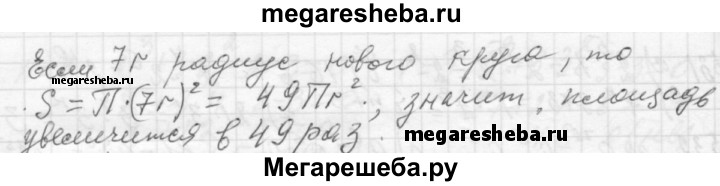 megaresheba.ru
Если 7r радиус нового круга, то
megaresheba.ru
S = П·(7r)² = 49Пr², значит, площадь
увеличится в 49 раз.
megaresheba.ru
Мегарешеба.ру